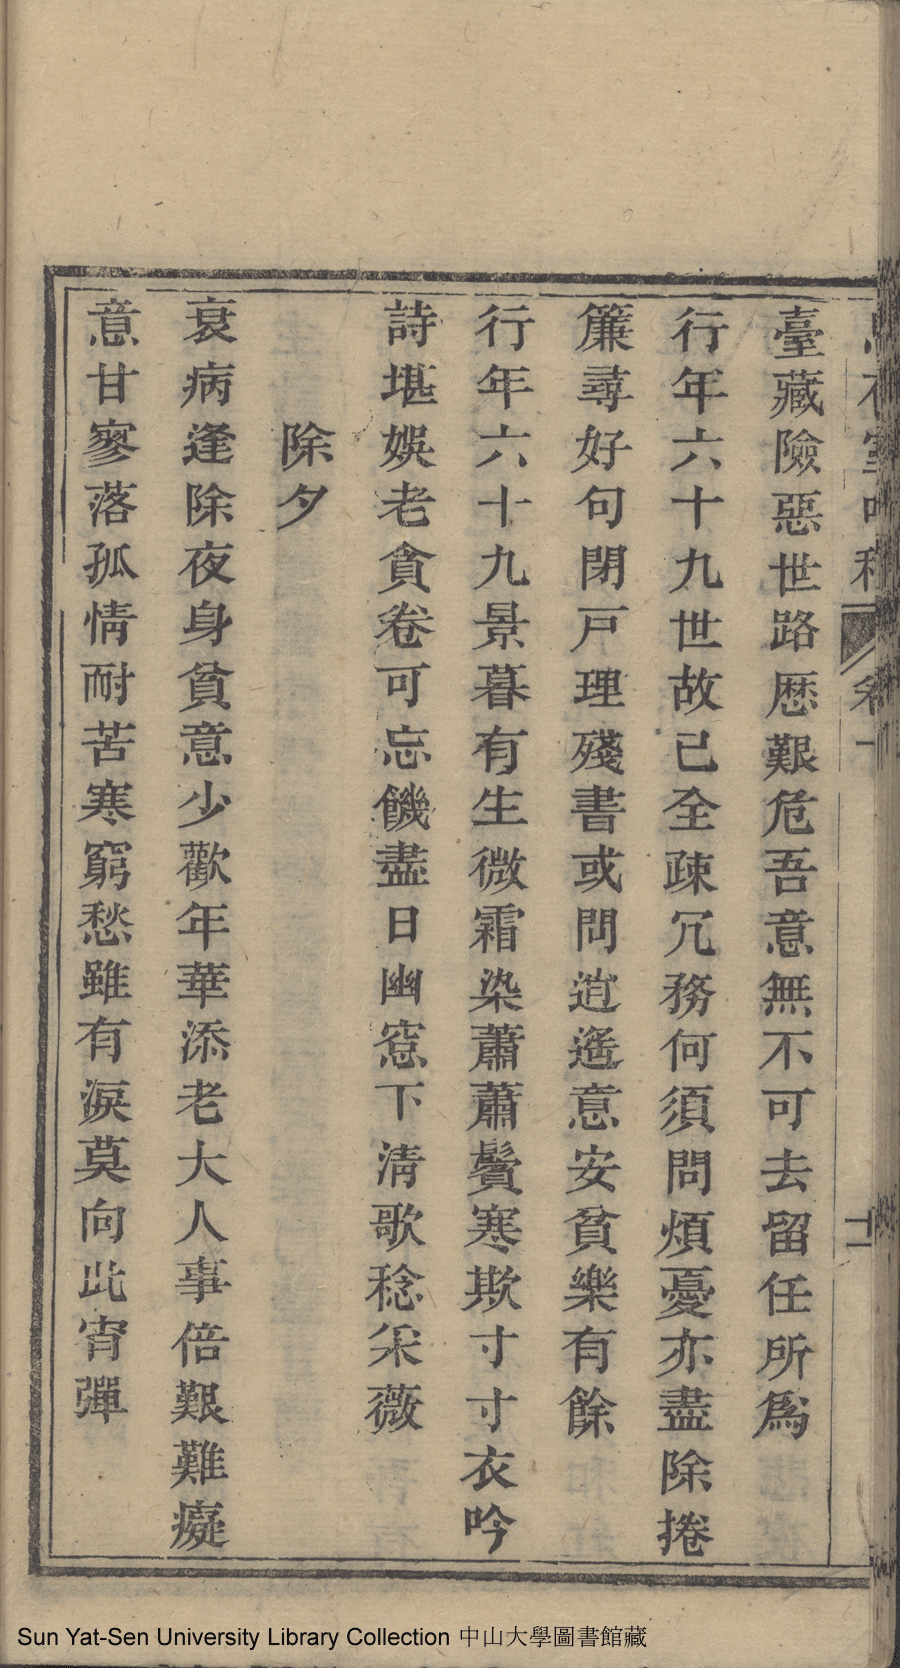 臺藏險惡世路歷艱危吾意無不可去留任所爲
行年六十九世故已全疎冗務何須問煩憂亦盡除捲
簾尋好句閉戸理殘書或問逍遙意安貧樂有餘
行年六十九景暮有生微霜染蕭蕭鬢寒欺寸寸衣吟
詩堪娛老貪卷可忘饑盡日幽窓下清歌稔采薇
除夕
衰病逢除夜身貧意少歡年華添老大人事倍艱難癡
意甘寥落孤情耐苦寒窮愁雖有淚莫向此宵彈
Sun Yat-Sen University Library Collection 中山大學圖書館藏